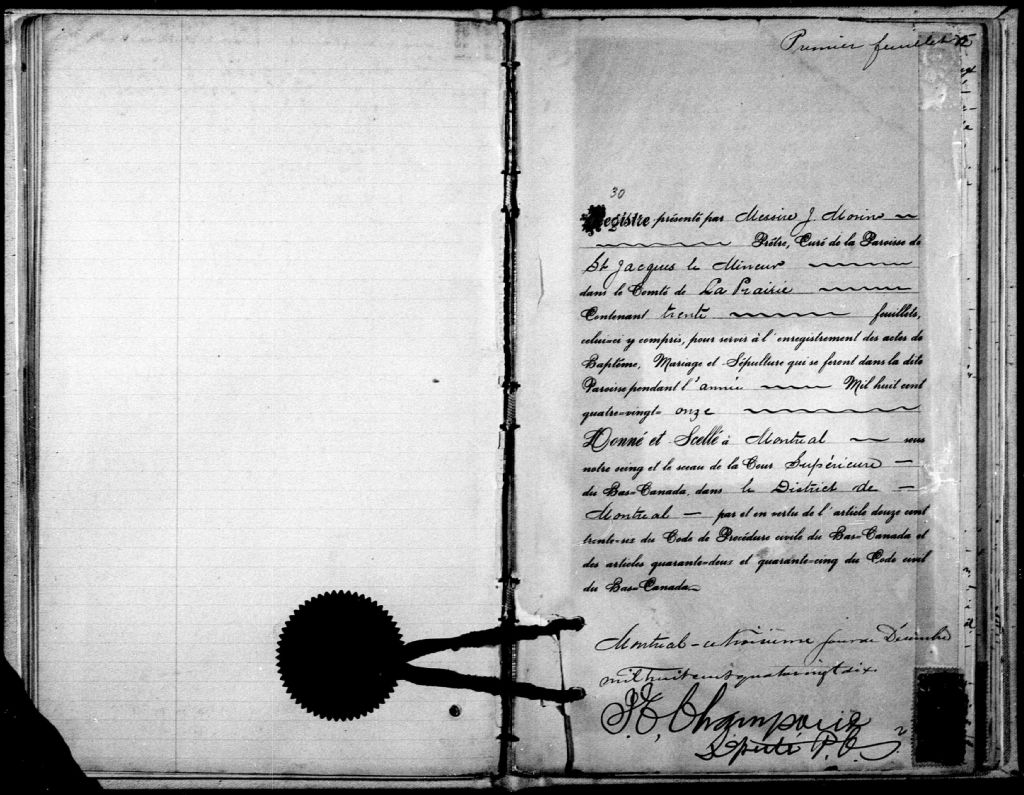 Premier feuillet
30
Registre présenté par Messire J. Morin
Prêtre, Curé de la Paroisse de
St Jacques le Mineur
dans le Comté de La Prairie
Contenant trente feuillets,
celui-ci y compris, pour servir à l'enregistrement des actes de
Baptême, Mariage et Sépulture qui se feront dans la dite
Paroisse pendant l'année Mil huit cent
quatre-vingt- onze
Donné et Scellé à Montréal sous
notre seing et le sceau de la Cour Supérieure
du Bas-Canada, dans le District de
Montréal par et en vertu de l'article douze cent
trente-six du Code de Procédure civile du Bas-Canada et
des articles quarante-deux et quarante-cinq du Code civil
du Bas-Canada.
Montréal - ce troisième jour de Décembre
mil huit cent quatrevingt dix.
Député P.